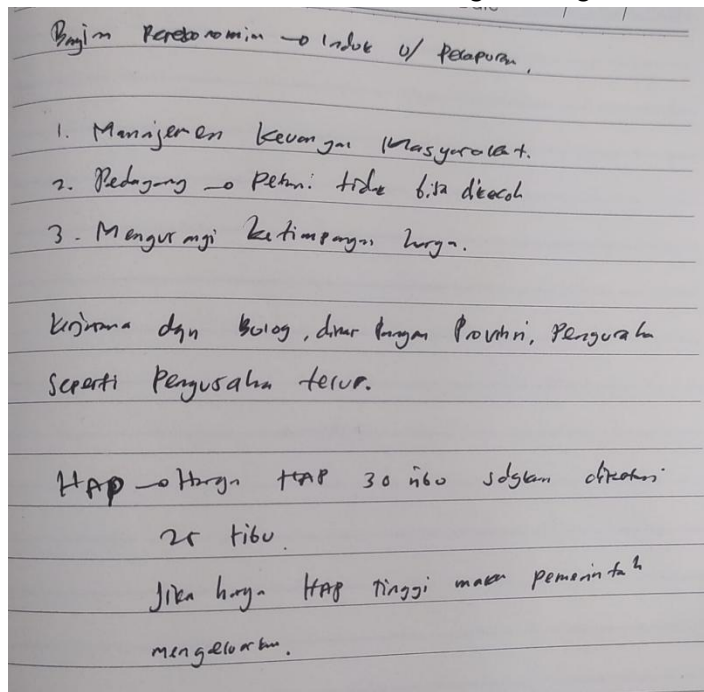 Bagian Perekonomian → Induk u/ Pelaporan.
1. Manajemen keuangan Masyarakat.
2. Pedagang → Petani tidak bisa dikecoh
3. Mengurangi ketimpangan harga.
Kerjasama dgn Bulog, dinas Pangan Provinsi, Pengusaha
seperti Pengusaha telur.
HAP → Harga HAP 30 ribu sdgkan
25 ribu.
Jika harga HAP tinggi maka pemerintah
mengeluarkan.